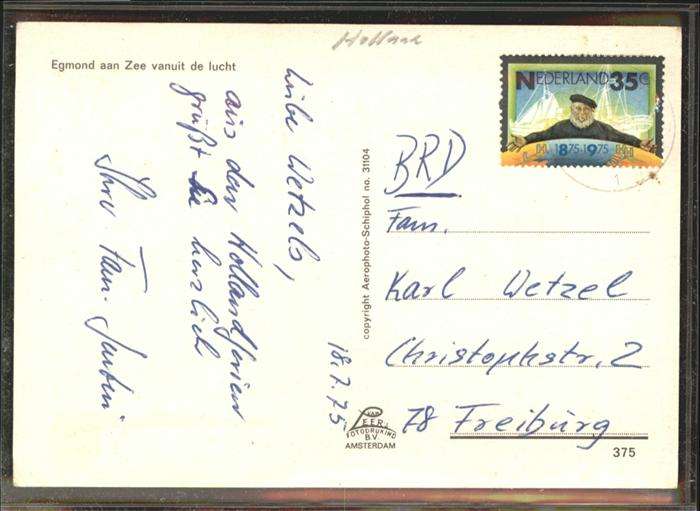 Holland
Egmond aan Zee vanuit de lucht
Liebe Wetzels,
aus den Hollandferien
grüßt Sie herzlich
Ihre Fam.
18.7.75
copyright Aerophoto-Schiphol no. 31104
VAN
LEER
FOTODRUKIND
B.V.
AMSTERDAM
NEDERLAND 35c
1875-1975
BRD
Fam.
Karl Wetzel
Christophstr. 2
78 Freiburg
375